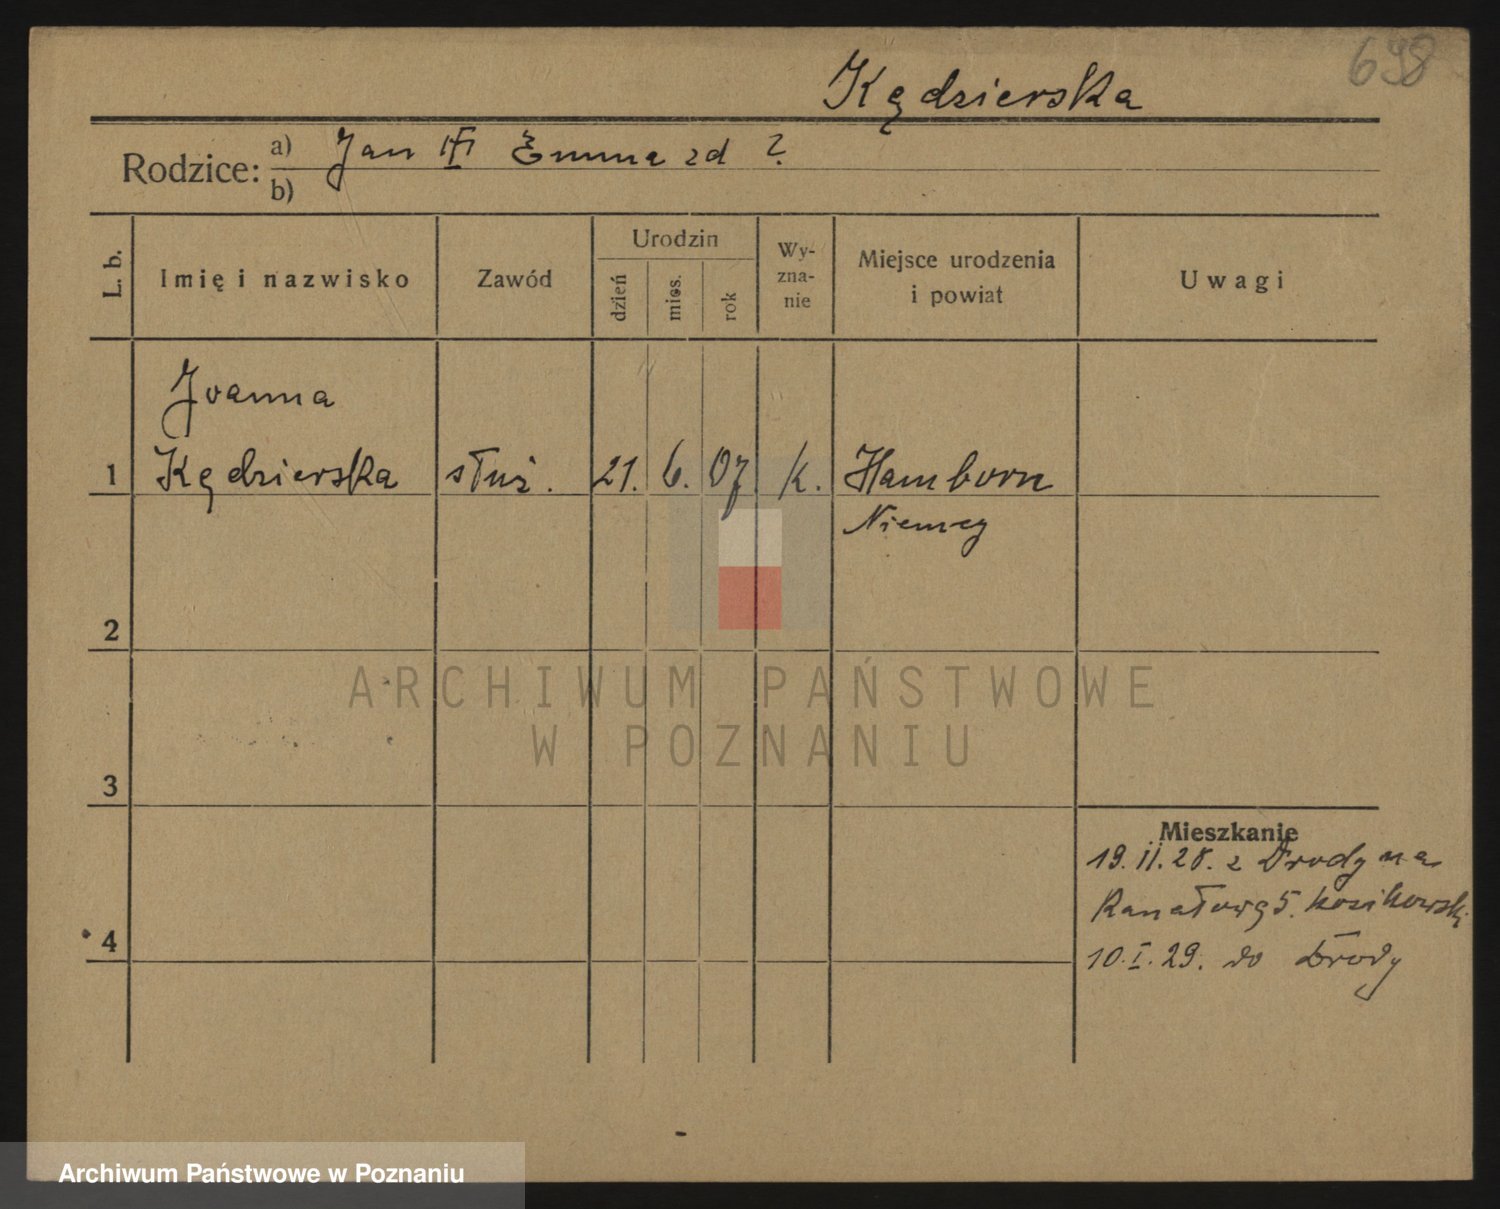 698
Kędzierska
Rodzice: a) Jan Emma zd ?
b)
L. b. Imię i nazwisko Zawód Urodzin dzień mies. rok Wyznanie Miejsce urodzenia i powiat Uwagi
Joanna
1 Kędzierska służ. 21. 6. 07 k. Hamborn
Niemcy
2
ARCHIWUM PAŃSTWOWE
W POZNANIU
3
Mieszkanie
19.II.28. z Środy na
Kanałową 5. Kosikowski
4
10.I.29. do Środy
Archiwum Państwowe w Poznaniu